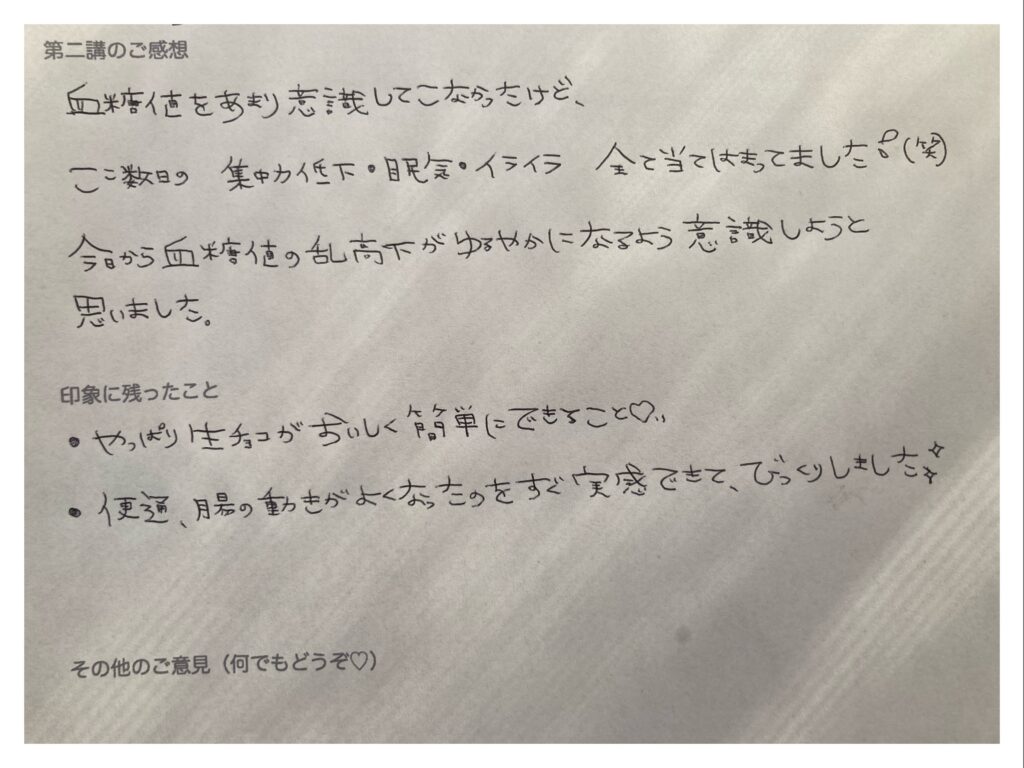 第二講のご感想
血糖値をあまり意識してこなかったけど、
ここ数日の 集中力低下・眠気・イライラ 全て当てはまってました(笑)
今日から血糖値の乱高下がゆるやかになるよう意識しようと
思いました。
印象に残ったこと
・やっぱり生チョコがおいしく簡単にできること♡
・便通、腸の動きがよくなったのをすぐ実感できて、びっくりしました
その他のご意見（何でもどうぞ♡）